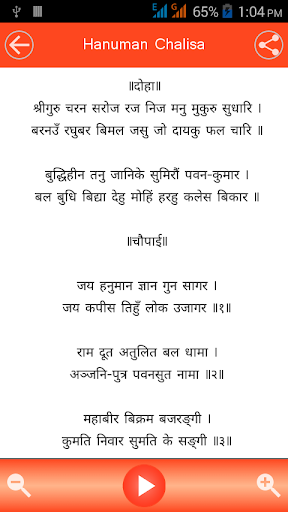 E G 65% 1:04 PM
Hanuman Chalisa
॥दोहा॥
श्रीगुरु चरन सरोज रज निज मनु मुकुरु सुधारि ।
बरनउँ रघुबर बिमल जसु जो दायकु फल चारि ॥
बुद्धिहीन तनु जानिके सुमिरौं पवन-कुमार ।
बल बुधि बिद्या देहु मोहिं हरहु कलेस बिकार ॥
॥चौपाई॥
जय हनुमान ज्ञान गुन सागर ।
जय कपीस तिहुँ लोक उजागर ॥१॥
राम दूत अतुलित बल धामा ।
अञ्जनि-पुत्र पवनसुत नामा ॥२॥
महाबीर बिक्रम बजरङ्गी ।
कुमति निवार सुमति के सङ्गी ॥३॥